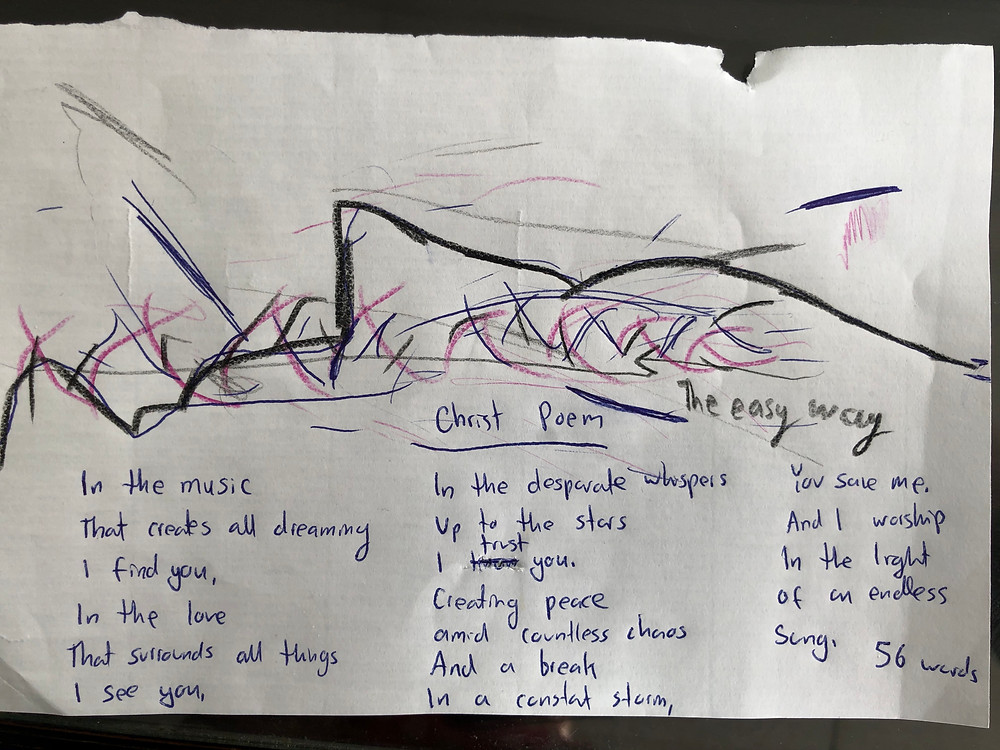 Christ Poem
The easy way
In the music
That creates all dreaming
I find you,
In the love
That surrounds all things
I see you,
In the desparate whispers
Up to the stars
I trust you.
Creating peace
amid countless chaos
And a break
In a constat storm,
You save me.
And I worship
In the light
of an endless
Song.
56 words